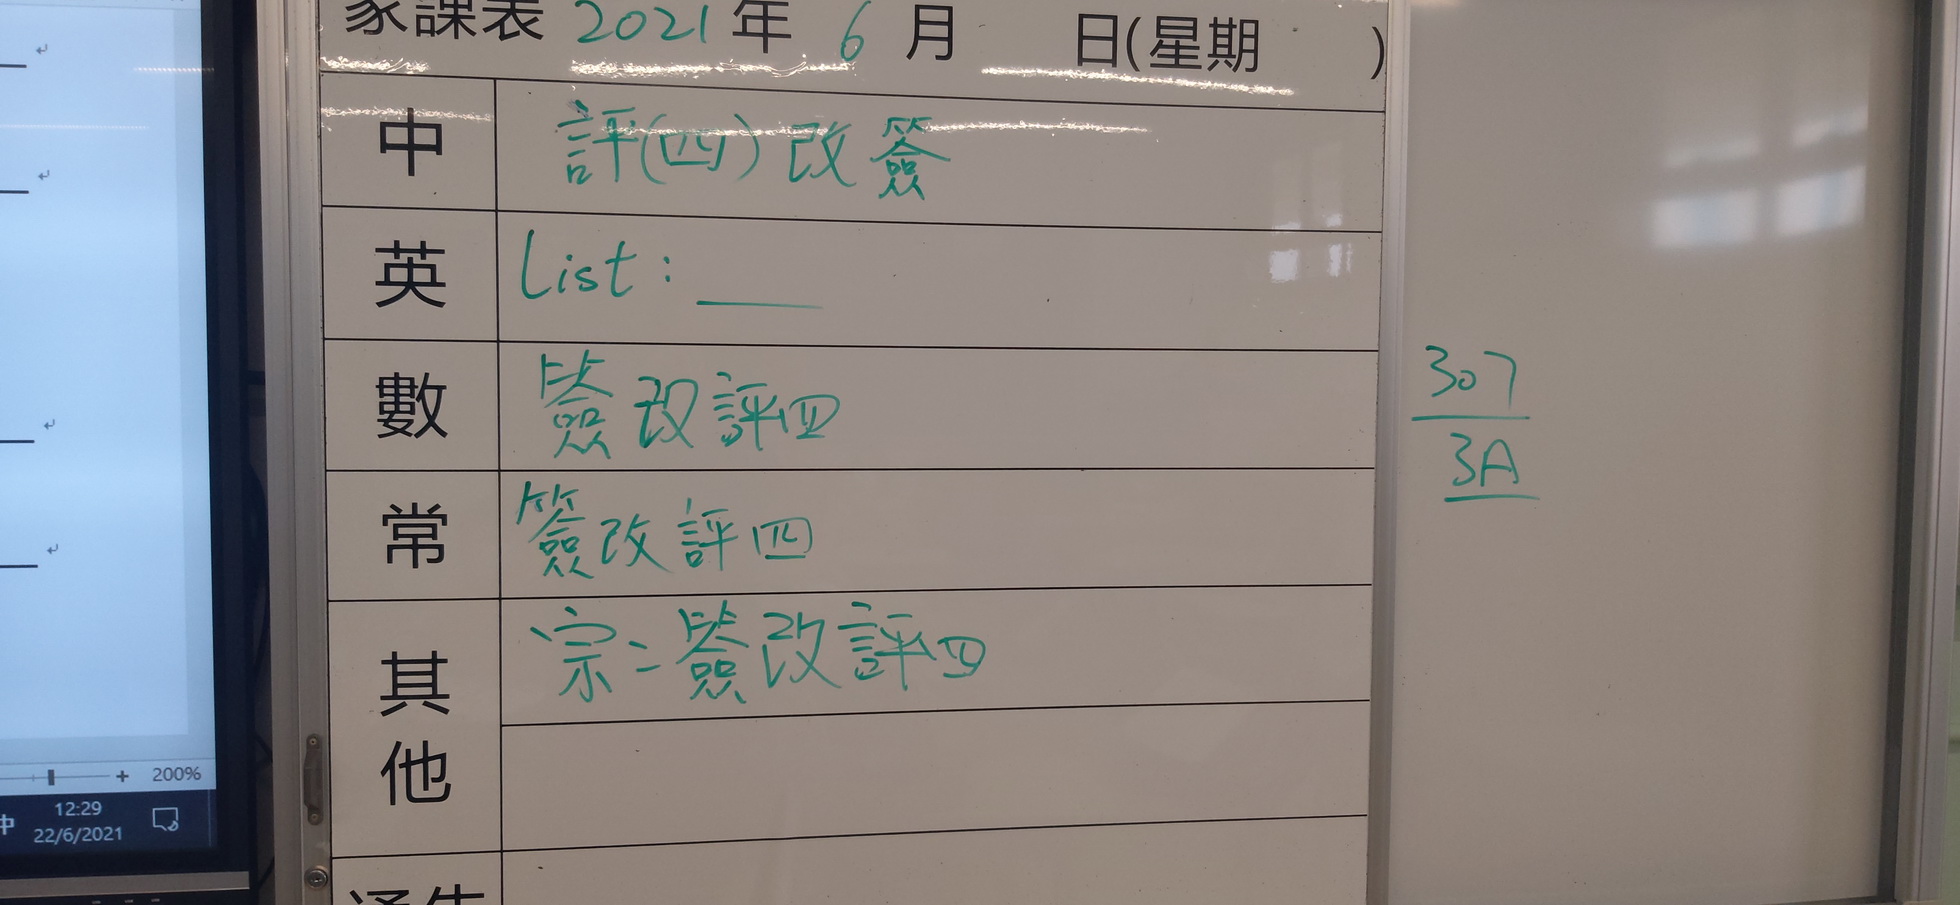 家課表 2021 年 6 月 日(星期 )
中 評(四)改簽
英 List: ___
數 簽改評四
常 簽改評四
其他 宗: 簽改評四
通告
307
3A
200%
中 12:29
22/6/2021